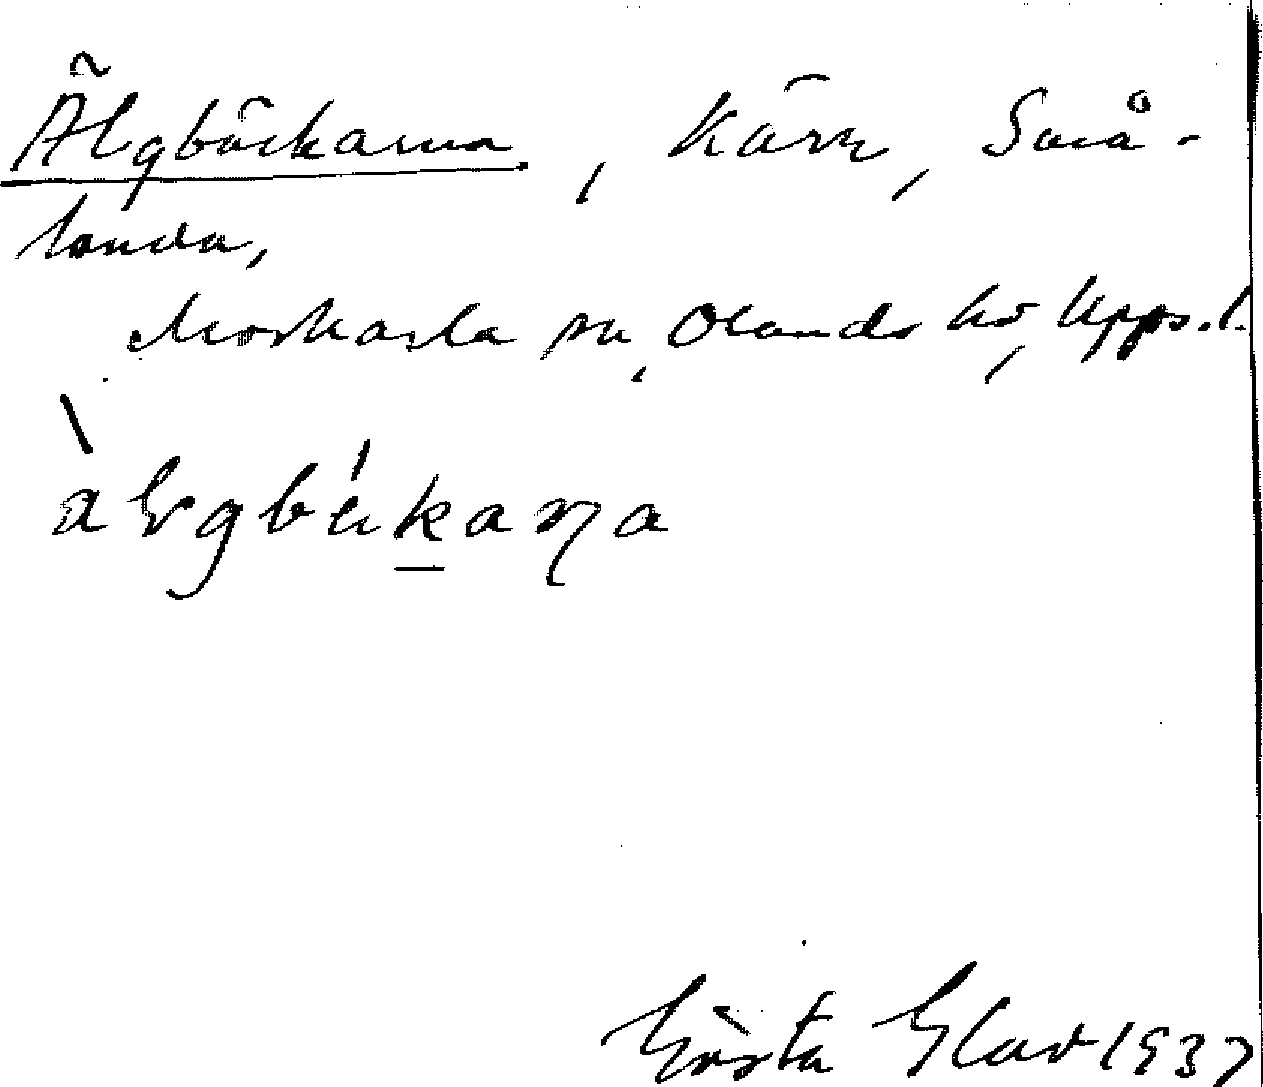 Älgbäckarna, Kärr, Små-
landa,
Morkarla sn, Olands hd, Upps.l.
Gösta Glad 1937